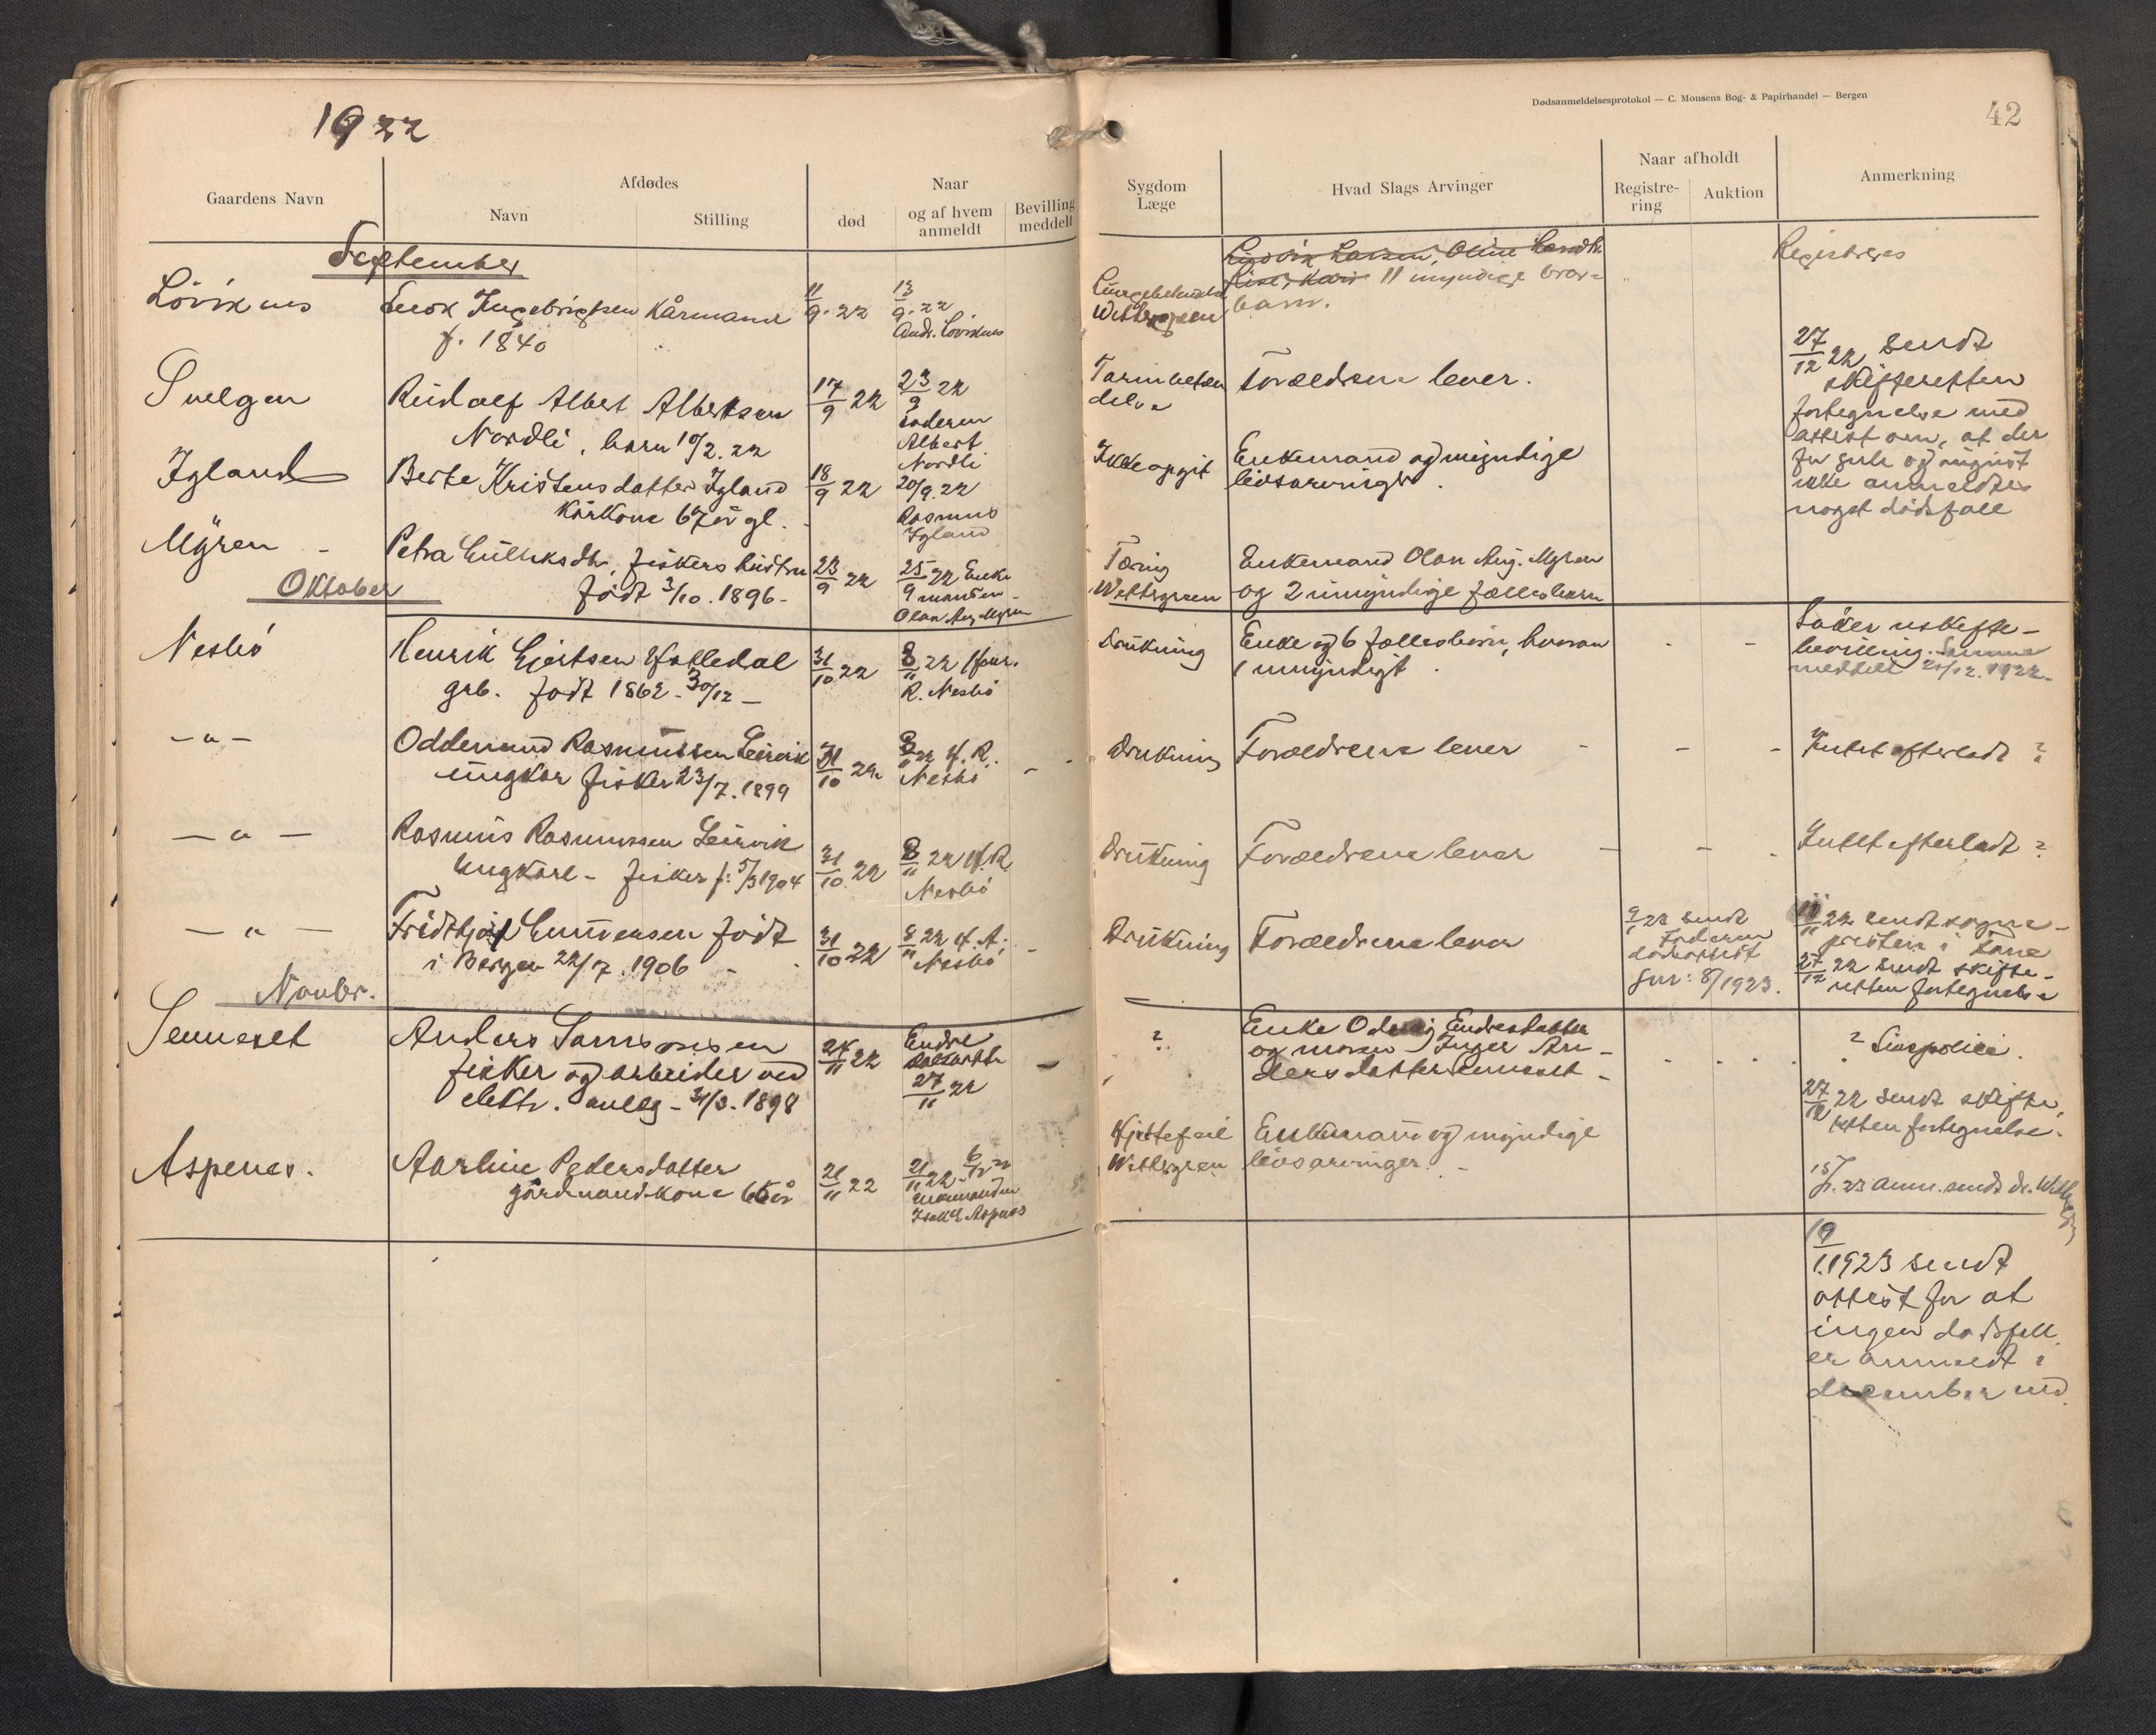 1922
Gaardens Navn
Afdødes
Navn
Stilling
Naar
død
og af hvem
anmeldt
Bevilling
meddelt
September
Løviknes
Enok Ingebrigtsen Kårmand
f. 1840
11/9. 22
13/9. 22
Andr. Løviknes
Svelgen
Rudolf Albert Albertsen
Nordli, barn 10/2. 22
17/9 22
23/9 22
faderen
Albert
Nordli
Igland
Berte Kristensdatter Igland
Kårkone 67 år gl.
18/9 22
20/9. 22
Rasmus
Igland
Myren -
Petra Gulliksdtr. fiskers hustru
født 3/10. 1896 -
23/9 22
25/9 22 Enke
manden -
Olan Aug. Myren
Oktober
Nesbø
Henrik Gjertsen Hatledal
grb. født 1862 - 30/12 -
31/10 22
8/11 22
R. Nesbø
- " -
Oddmund Rasmussen Leirvik
ungkar fisker 23/7. 1899
31/10 22
8/11 22 H. R.
Nesbø
- " -
Rasmus Rasmussen Leirvik
Ungkarl - fisker f. 5/3 1904
31/10. 22
8/11 22 H. R.
Nesbø
- " -
Fridthjof født
i Bergen 22/7. 1906 -
31/10 22
8/11 22
Nesbø
Novbr.
Senneset
Anders Samsonsen
fisker og arbeider ved
elektr. anleg - 31/3. 1898
22
Endre
27/11 22
Aspenes.
Aarline Pedersdatter
gårdmandskone 65 år
21/11 22
21/11 22 -
enkemanden
Aspenes
Dødsanmeldelsesprotokol — C. Monsens Bog- & Papirhandel — Bergen
42
Sygdom
Læge
Hvad Slags Arvinger
Naar afholdt
Registre-
ring
Auktion
Anmerkning
Ludvik Larsen, Oline
11 myndige
barn.
Registreres
Lungebetendelse
Wettergreen
Tarmbeten
delse
Forældrene lever.
27/12 22 sendt
skifteretten
fortegnelse med
attest om, at der
for juli og august
ikke anmeldtes
noget dødsfall
Ikke opgit
Enkemand og myndige
livsarvinger.
Tæring
Wettergreen
Enkemand Olan Aug. Myren
og 2 umyndige fællesbarn
Drukning
Enke og 6 fællesbørn, hvorav
1 umyndigt.
Søker uskifte-
bevilling. Samme
meddelt 20/12. 1922.
Drukning
Forældrene lever -
- -
Intet efterladt ?
Drukning
Forældrene lever
- - -
Intet efterladt ?
Drukning
Forældrene lever
sendt
Faderen
dødsattest
Jnr: 8/1923.
10/11 22 sendt sogne-
presten i
27/12 22 sendt skifte-
retten fortegnelse
?
Enke Odny Endresdatter
og moren - Inger An-
dersdatter Senneset -
? Livspolice.
27/12 22 sendt skifte-
retten fortegnelse.
Hjertefeil
Wettergreen
Enkemand og myndige
livsarvinger. -
15/1. 23 anm. sendt dr. Wettergr.
19/1.1923 sendt
attest for at
ingen dødsfall
er anmeldt i
december md.